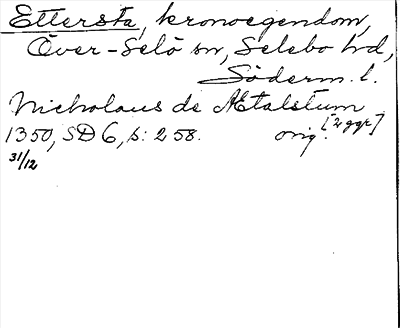 Ettersta, kronoegendom,
Över-Selö sn, Selebo hd,
Söderm. l.
Nicholaus de Ætalstum
1350, SD 6, s: 258. orig. [2 ggr]
31/12